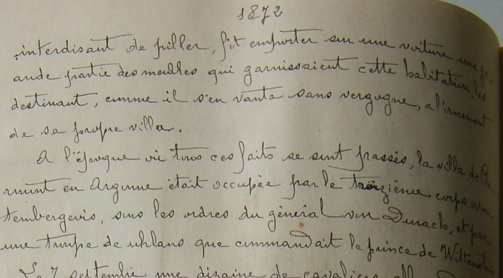 1872
interdisant de piller, fit emporter sur une voiture une g
ande partie des meubles qui garnissaient cette habitation, les
destinant, comme il s'en vanta sans vergogne, a l'ornement
de sa propre villa.
A l'époque où tous ces faits se sont passés, la villa de
mont en Argonne était occupée par le treizième corps wur
tembergeois, sous les ordres du général von et par
une troupe de uhlans que commandait le prince de
Le 7 septembre une dizaine de cavaliers